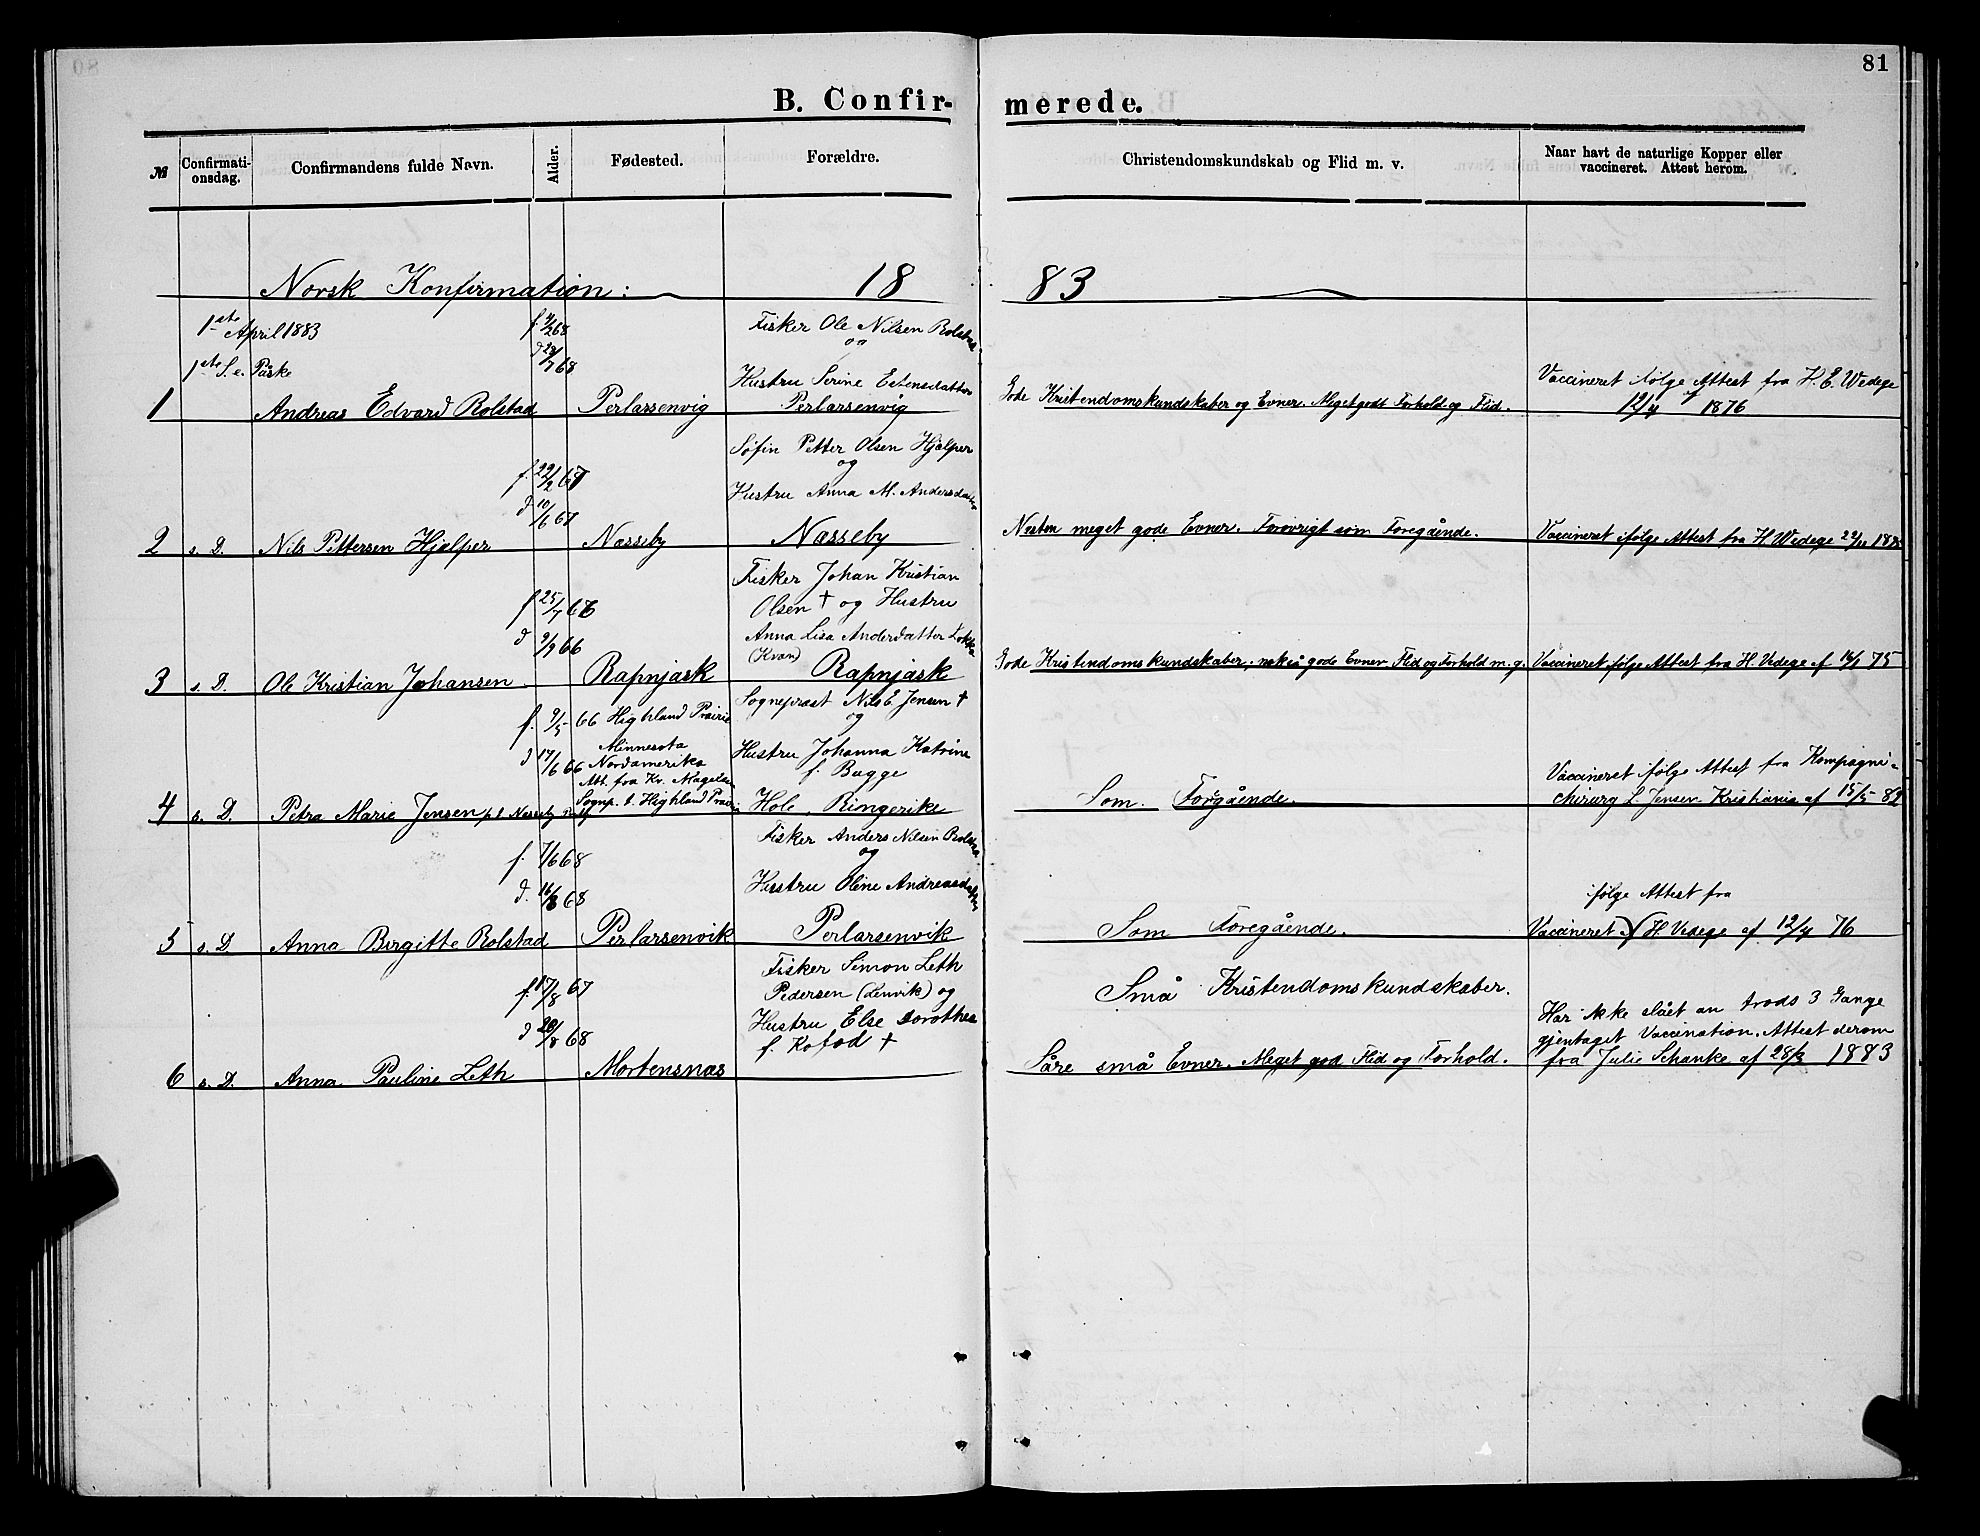 81
B. Confirmerede.
№ Confirmati-onsdag. Confirmandens fulde Navn. Alder. Fødested. Forældre. Christendomskundskab og Flid m. v. Naar havt de naturlige Kopper eller vaccineret. Attest herom.
Norsk Konfirmation: 1883
1ste April 1883
1ste S. e. Påske
f. 4/2 68
d 29/7 68
Fisker Ole Nilsen Rolstad
og
Hustru Serine
1 Andreas Edvard Rolstad Perlarsenvig Perlarsenvig Gode Kristendomskundskaber og Evner. Meget godt Forhold og Flid.
Vaccineret ifølge Attest fra H. E. Wedege
af 12/4 1876
Søfin Petter Olsen Hjelper
og
Hustru Anna M. Andersdatter
f. 22/2 67
d 10/6 67
2 s. D. Nils Pettersen Hjelper Næsseby Næsseby Næsten meget gode Evner. Forøvrigt som Foregående. Vaccineret ifølge Attest fra H. Wedege
Fisker Johan Kristian
Olsen † og Hustru
Anna Lisa Andersdatter
(Kvæn)
f 25/7 66
d 9/9 66
3 s. D. Ole Kristian Johansen Rapnjask Rapnjask Gode Kristendomskundskaber, gode Evner Flid og Forhold m. g. Vaccineret ifølge Attest fra H. Vedege af 75
f. 9/5 66 Highland Prairie
Minnesota
d 17/6 66 Nordamerika
Att. fra Kv. Magelssen
Sognp. t. Highland Prairie
Sognepræst Nils E. Jensen †
og
Hustru Johanna Katrine
f. Bugge
4 s. D. Petra Marie Jensen Hole, Ringerike Som Forgående.
Vaccineret ifølge Attest fra Kompagni-
chirurg L. Jensen Kristiania af 15/5
Fisker Anders Nilsen Rolstad
og
Hustru Oline Andreasdatter
f. 7/6 68
d. 16/8 68
5 s. D. Anna Birgitte Rolstad Perlarsenvik Perlarsenvik Som Foregående.
ifølge Attest fra
Vaccineret H. Vedege af 12/4 76
Fisker Simon Leth
Pedersen (Lenvik) og
Hustru Else Dorothea
f. Kofod †
f. 17/8 67
d 20/8 68
6 s. D. Anna Pauline Leth Mortensnæs
Små Kristendomskundskaber.
Såre små Evner. Meget god Flid og Forhold.
Har ikke slået an trods 3 Gange
gjentaget Vaccination. Attest derom
fra Julie Schanke af 28/3 1883